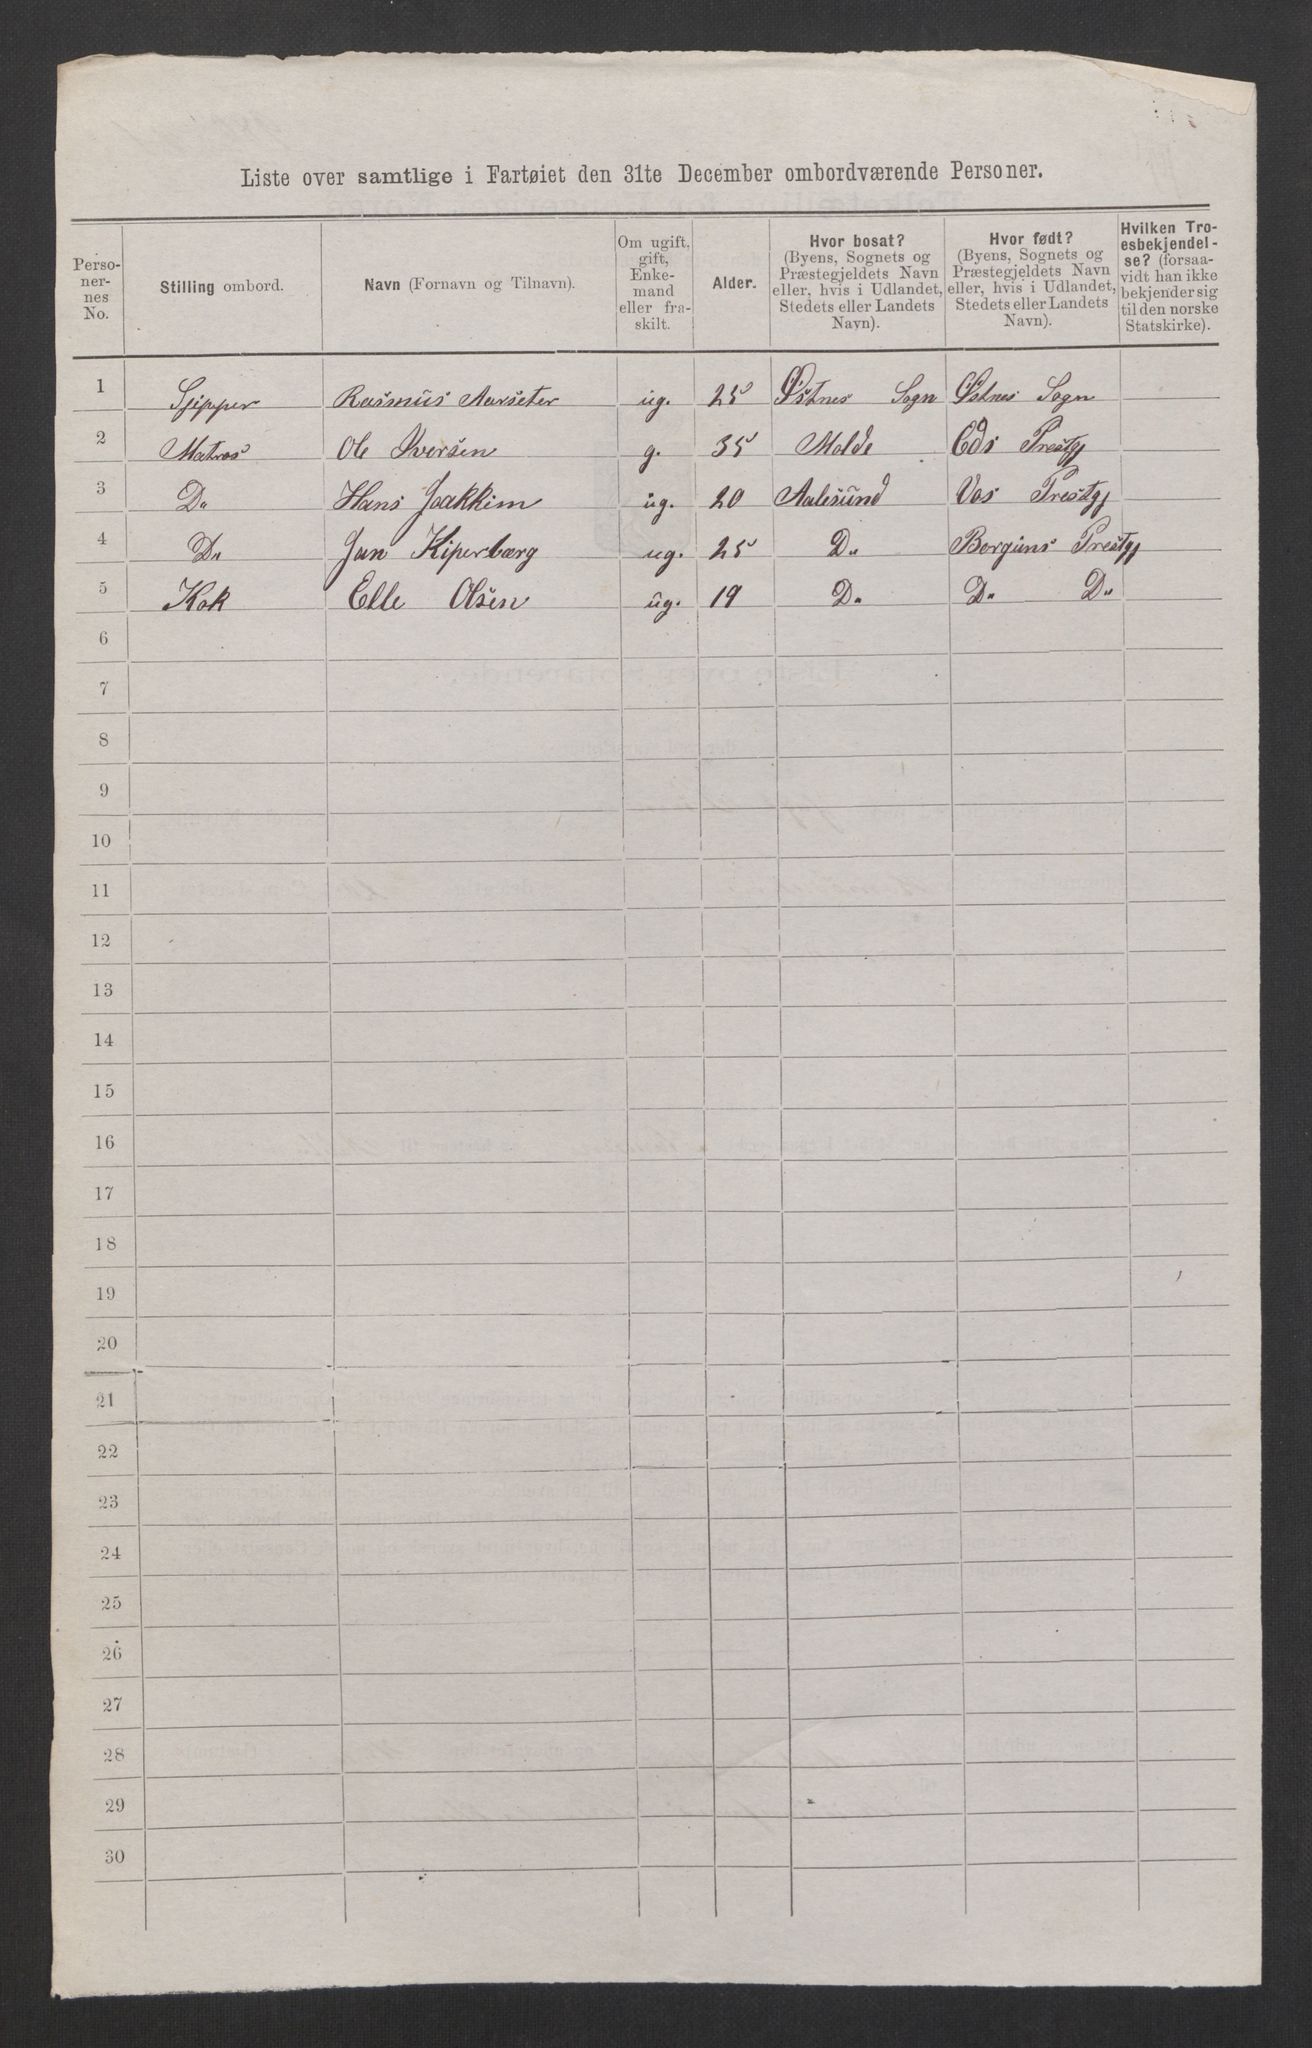 Liste over samtlige i Fartøiet den 31te December ombordværende Personer.
Perso-
ner-
nes
No.
Stilling ombord.
Navn (Fornavn og Tilnavn).
Om ugift,
gift,
Enke-
mand
eller fra-
skilt.
Alder.
Hvor bosat?
(Byens, Sognets og
Præstegjeldets Navn
eller, hvis i Udlandet,
Stedets eller Landets
Navn).
Hvor født?
(Byens, Sognets og
Præstegjeldets Navn
eller, hvis i Udlandet,
Stedets eller Landets
Navn).
Hvilken Tro-
esbekjendel-
se? (forsaa-
vidt han ikke
bekjender sig
til den norske
Statskirke).
1 Sjipper Rasmus Aarseter ug. 25 Østnes Sogn Østnes Sogn
2 Matros Ole Iversen g. 35 Molde Eds Prestgj
3 Do Hans Joakkim ug. 20 Aalesund Vos Prestgj
4 Do Jan Kiperberg ug. 25 Do Borguns Prestgj
5 Kok Elle Olsen ug. 19 Do Do Do
6
7
8
9
10
11
12
13
14
15
16
17
18
19
20
21
22
23
24
25
26
27
28
29
30